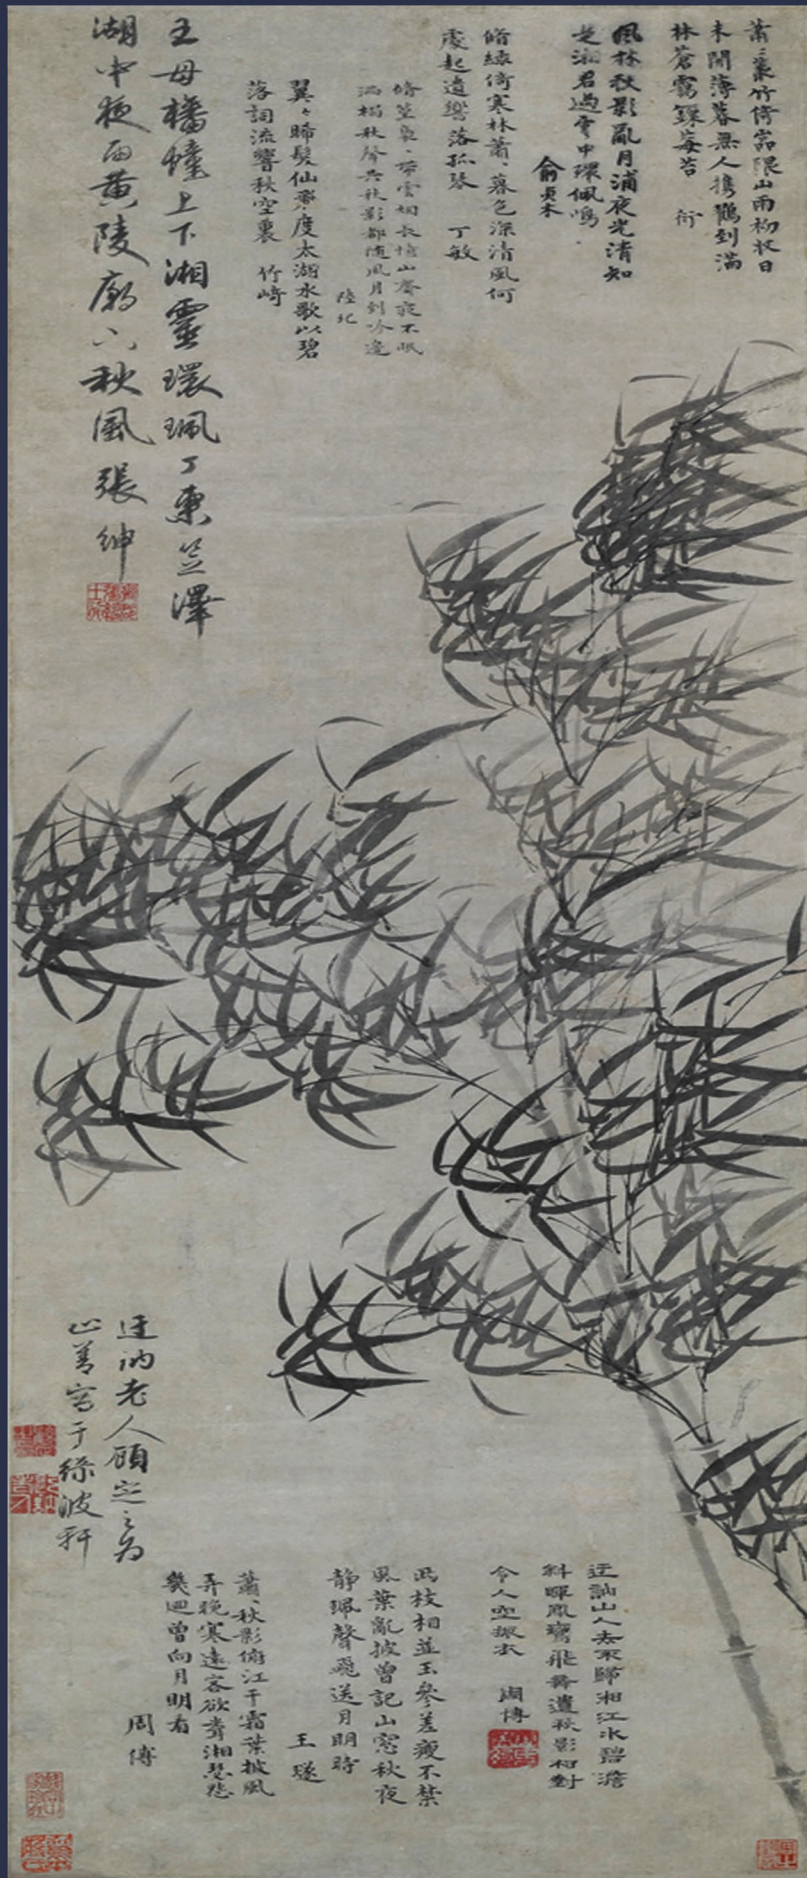 蕭蕭叢竹倚嵒隈山雨初收日
未開薄暮無人携鶴到滿
林蒼雪鏁莓苔 衍
風林秋影亂月浦夜光清知
是湘君過雲中環佩鳴
俞貞木
脩緑倚寒林蕭蕭暮色深清風何
處起遺響落孤琴 丁敏
脩篁裊裊帶雲烟長憶山齋夜不眠
秋聲與秋影都隨風月到吟邊
翼翼晞髮仙度太湖水歌以碧
落詞流響秋空裏 竹崎
王母橦上下湘靈環珮丁東笠澤
湖中夜雨黄陵廟下秋風 張紳
迂訥老人顧定之為
止善寫于緑波軒
迂訥山人去不歸湘江水碧澹
斜暉鳳鸞飛舞遺秋影相對
令人空攬衣 周傅
兩枝相並玉參差瘦不禁
風葉亂披曾記山窓秋夜
靜珮聲飛送月明時
王璲
蕭蕭秋影俯江干霜葉披風
弄晚寒遠客欲賡湘瑟怨
幾迴曾向月明看
周傅